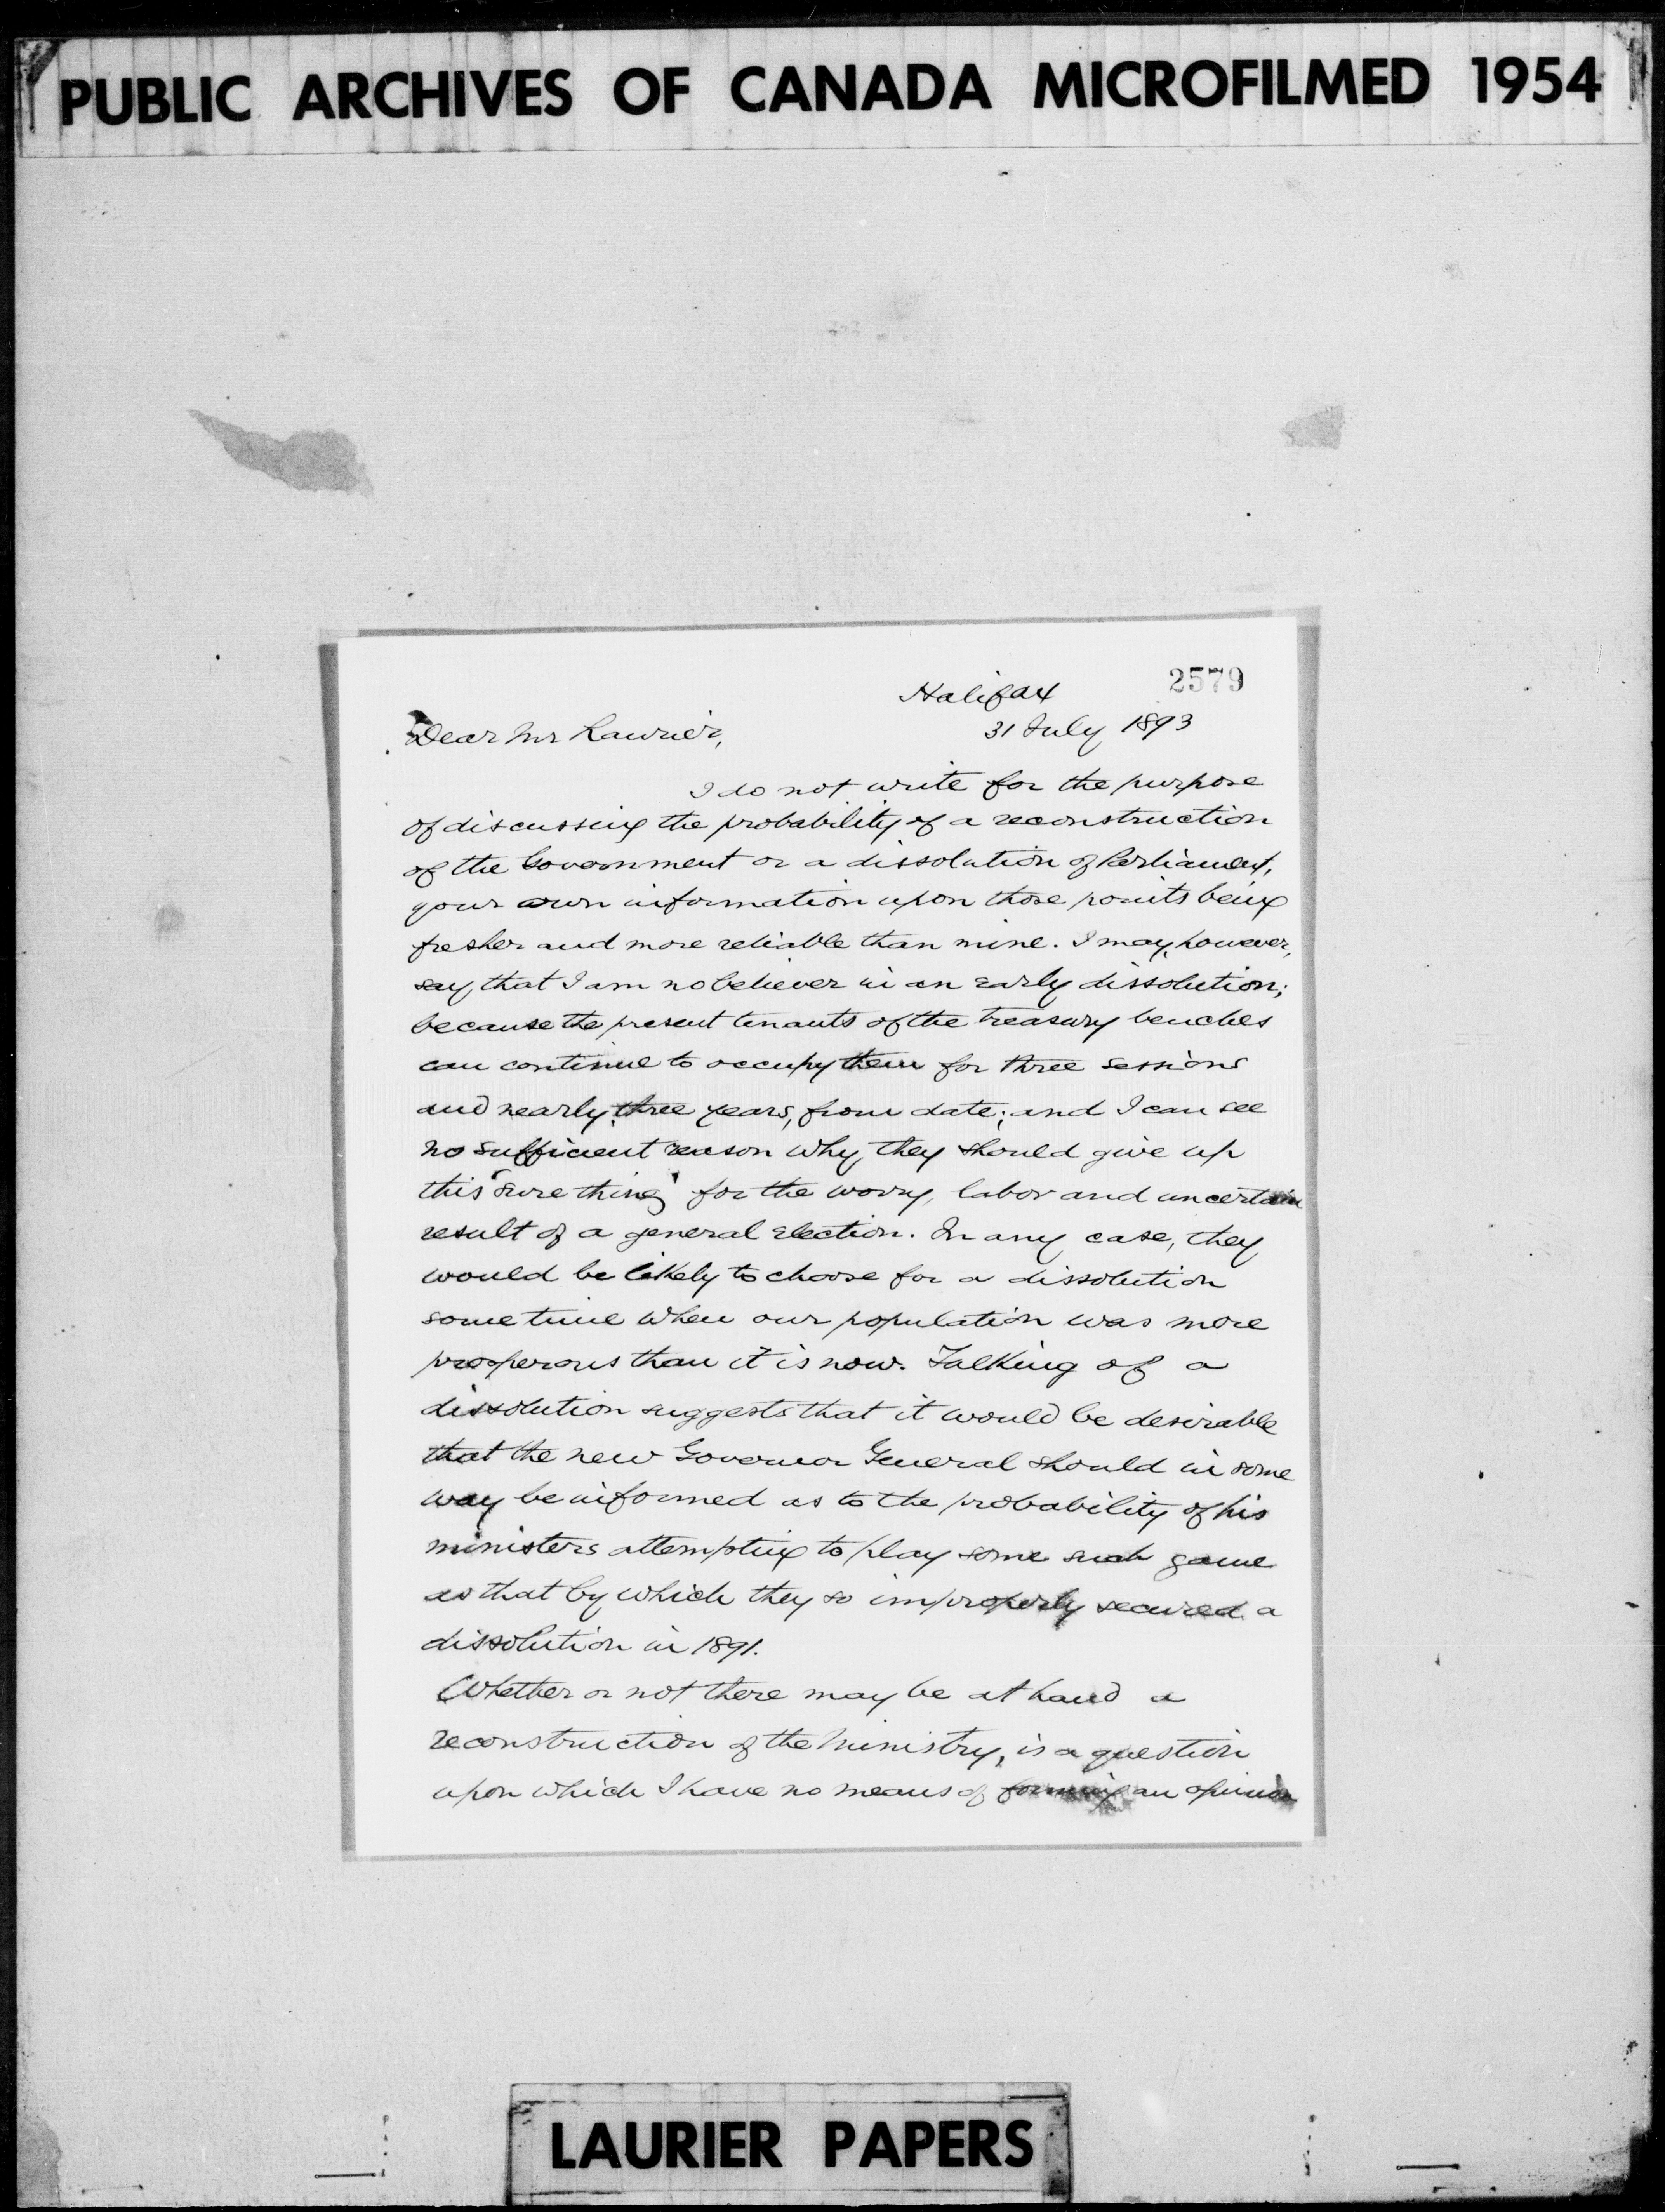 PUBLIC ARCHIVES OF CANADA MICROFILMED 1954
2579
Halifax
31 July 1893
Dear Mr Laurier,
I do not write for the purpose
of discussing the probability of a reconstruction
of the Government or a dissolution of Parliament,
your own information upon those points being
fresher and more reliable than mine. I may, however,
say, that I am no believer in an early dissolution;
because the present tenants of the treasury benches
can continue to occupy them for three sessions
and nearly three years, from date; and I can see
no sufficient reason why, they should give up
this "sure thing" for the worry, labor and uncertain
result of a general election. In any case, they
would be likely to choose for a dissolution
some time when our population was more
prosperous than it is now. Talking of a
dissolution suggests that it would be desirable
that the new Governor General should in some
way be informed as to the probability of his
ministers attempting to play some such game
as that by which they so improperly secured a
dissolution in 1891.
Whether or not there may be at hand a
reconstruction of the Ministry, is a question
upon which I have no means of forming an opinion
LAURIER PAPERS